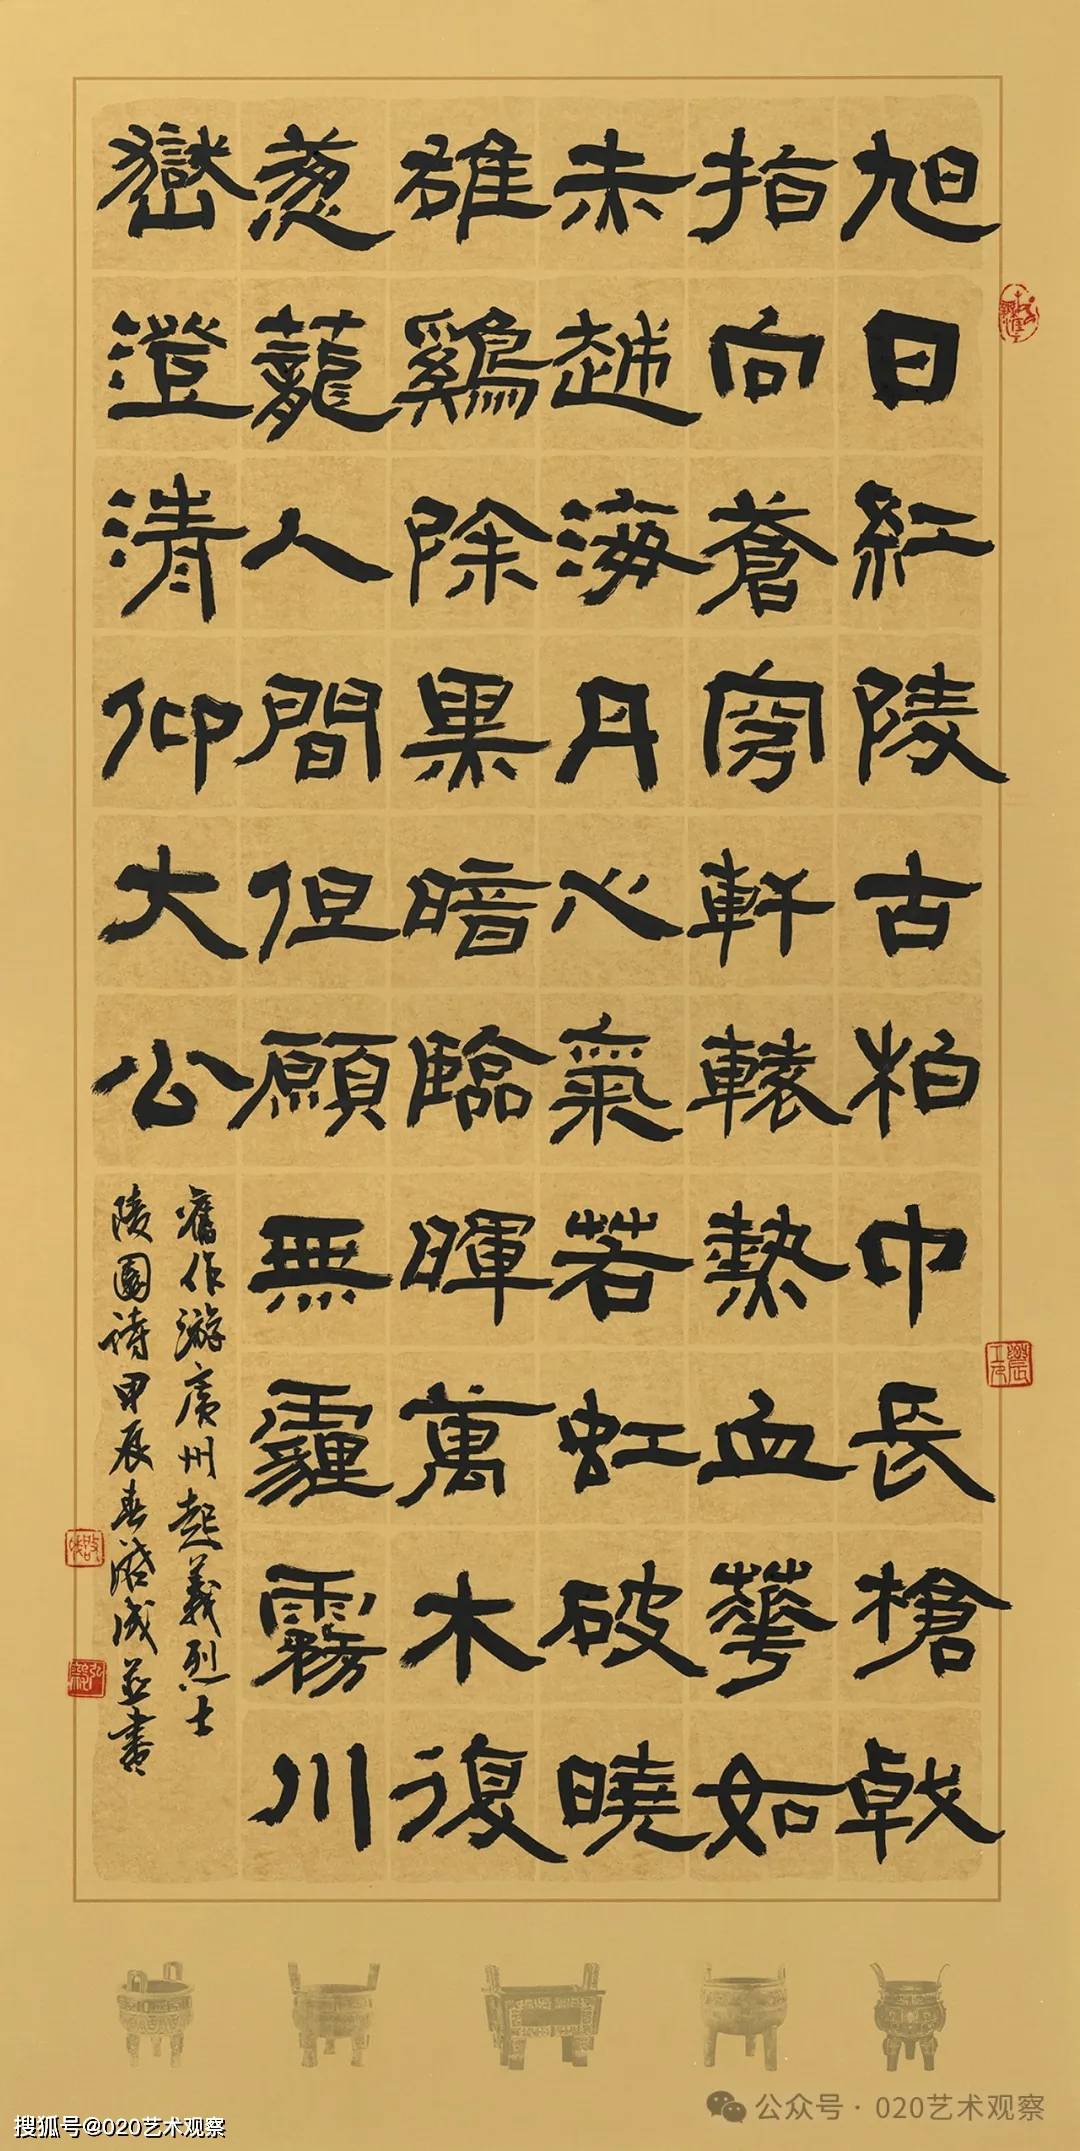 旭日紅陵古柏中長槍戟
指向蒼穹軒轅熱血華如
赤越海丹心氣若虹破曉
雄鷄除黑暗臨暉萬木復
葱蘢人間但願無霾霧川
嶽澄清仰大公
舊作游廣州起義烈士
陵園詩甲辰春成並書
搜狐号@020艺术观察
公众号·020艺术观察